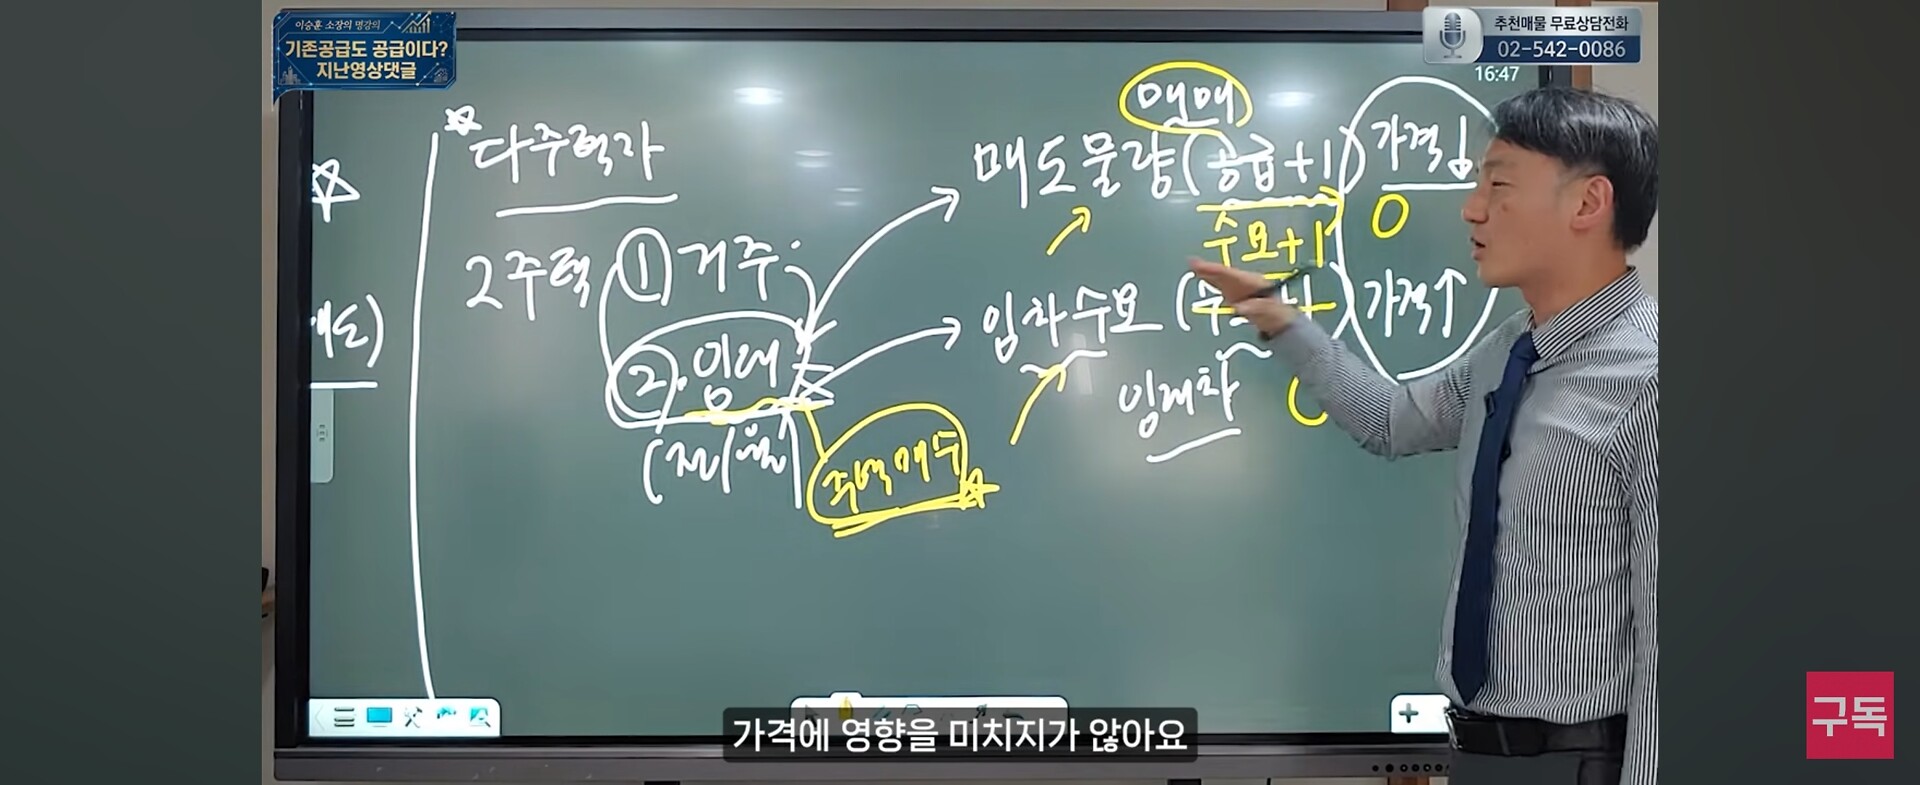 이승훈 소장의 명강의
기존공급도 공급이다?
지난영상댓글
추천매물 무료상담전화
02-542-0086
16:47
매매
다주택자
매도물량 (공급+1) 가격↓
수요+1 0
2주택 ① 거주
임차수요 가격↑
② 임대
임대차
(전/월)
주택매수
가격에 영향을 미치지가 않아요
구독